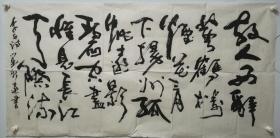 故人西辭
黃鶴樓
煙花三月
下揚州孤
帆遠影
碧空盡
惟見長江
天際流
李白詩